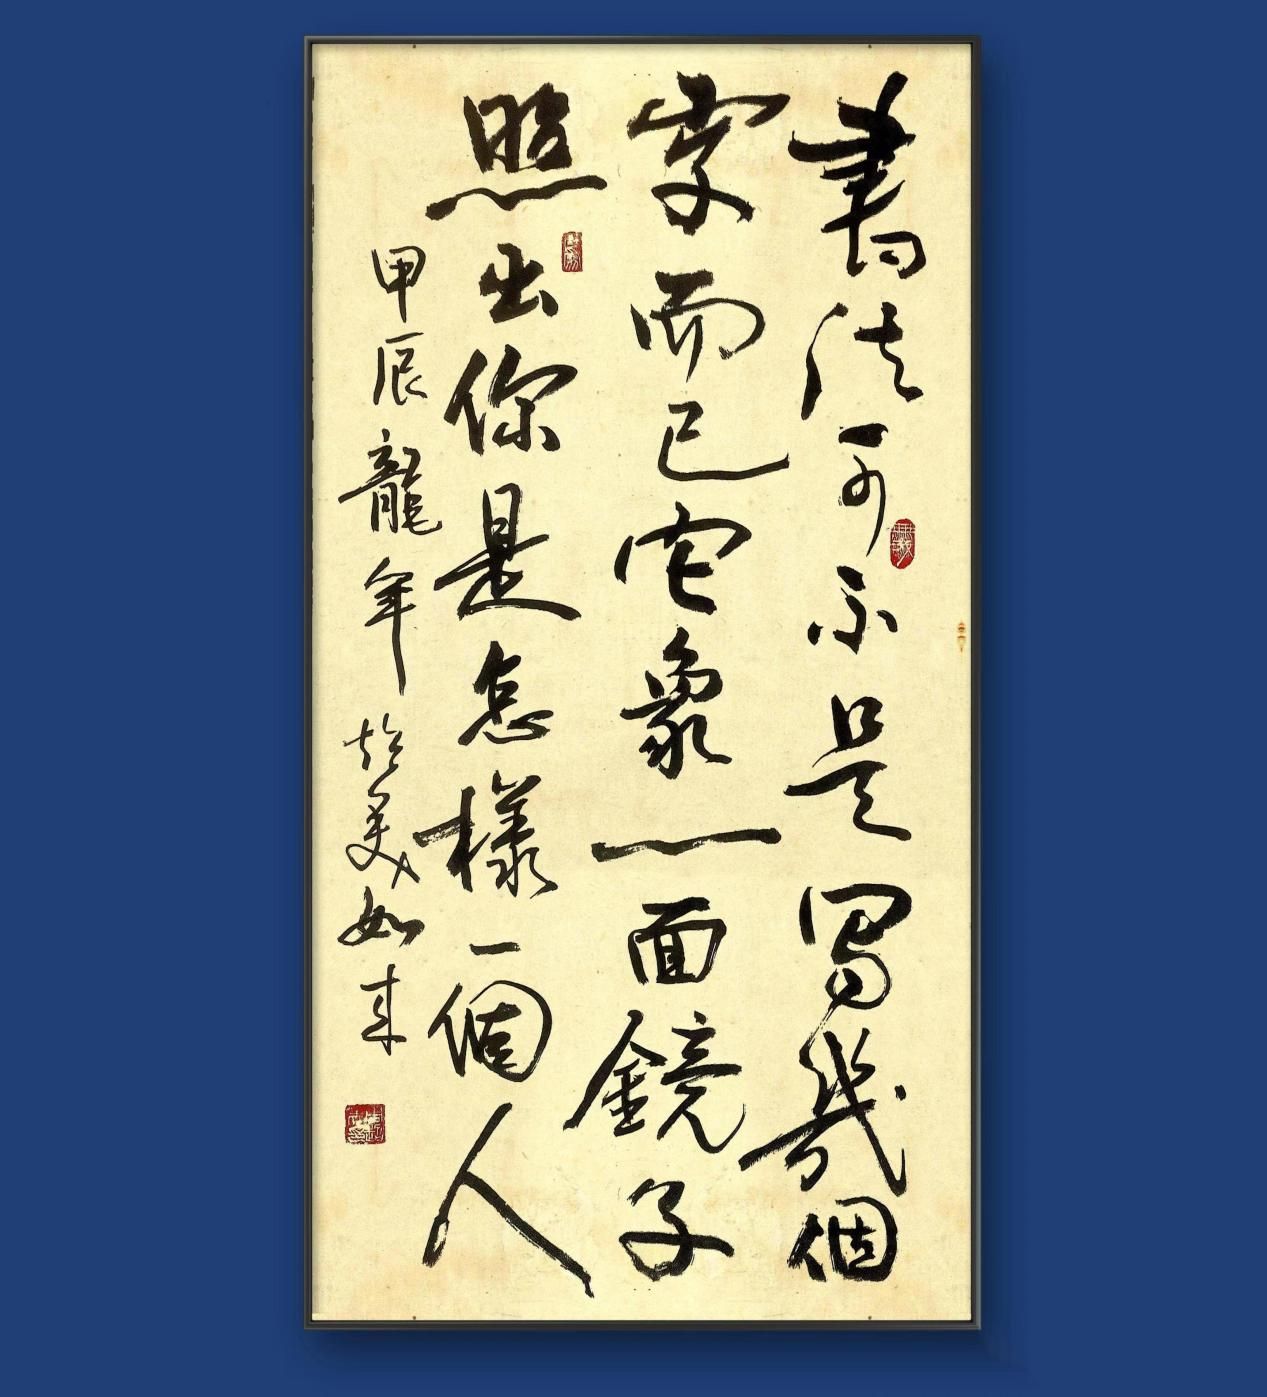 書法可不是寫幾個
字而已它象一面鏡子
照出你是怎樣一個人
甲辰龍年於美如來